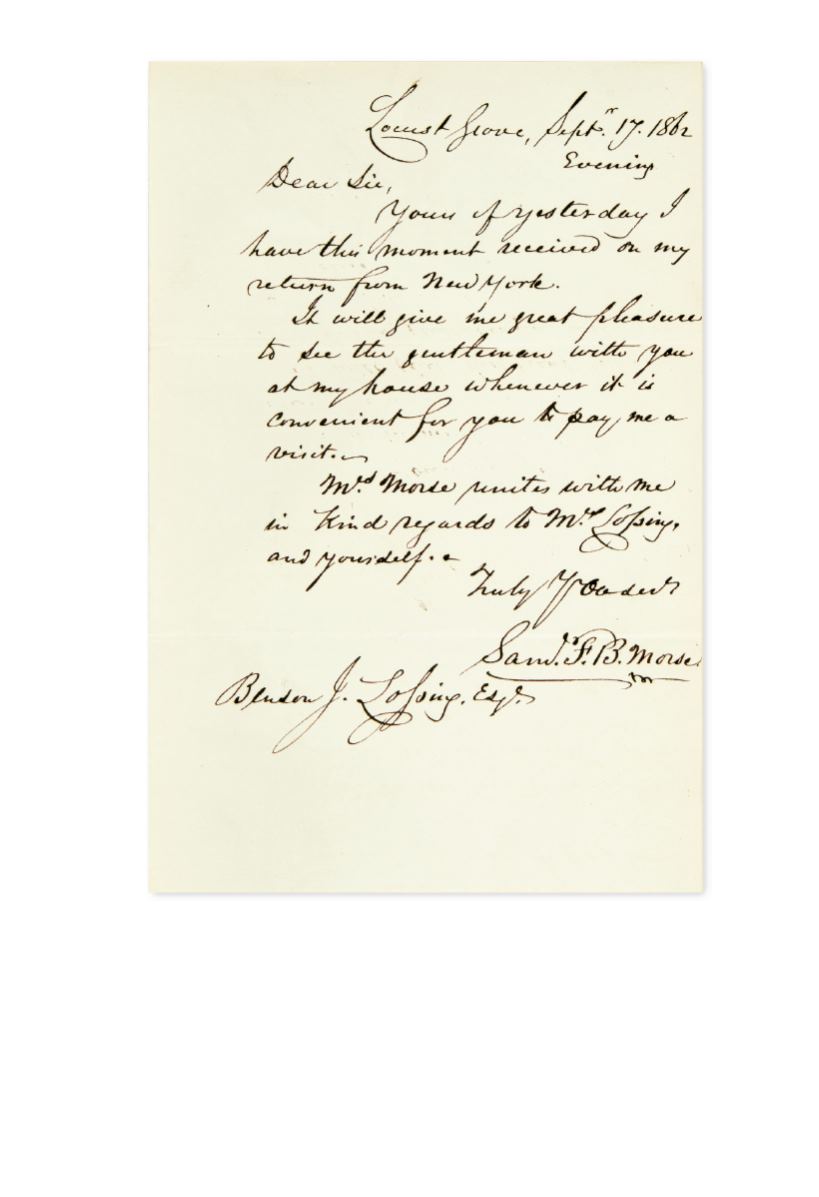 Locust Grove, Septr. 17. 1862
Evening
Dear Sir,
Yours of yesterday I
have this moment received on my
return from New York.
It will give me great pleasure
to see the gentleman with you
at my house whenever it is
convenient for you to pay me a
visit.
Mrs Morse unites with me
in kind regards to Mrs Lossing,
and yourself.
Truly Yr Ob servt
Saml. F. B. Morse.
Benson J. Lossing, Esqr.